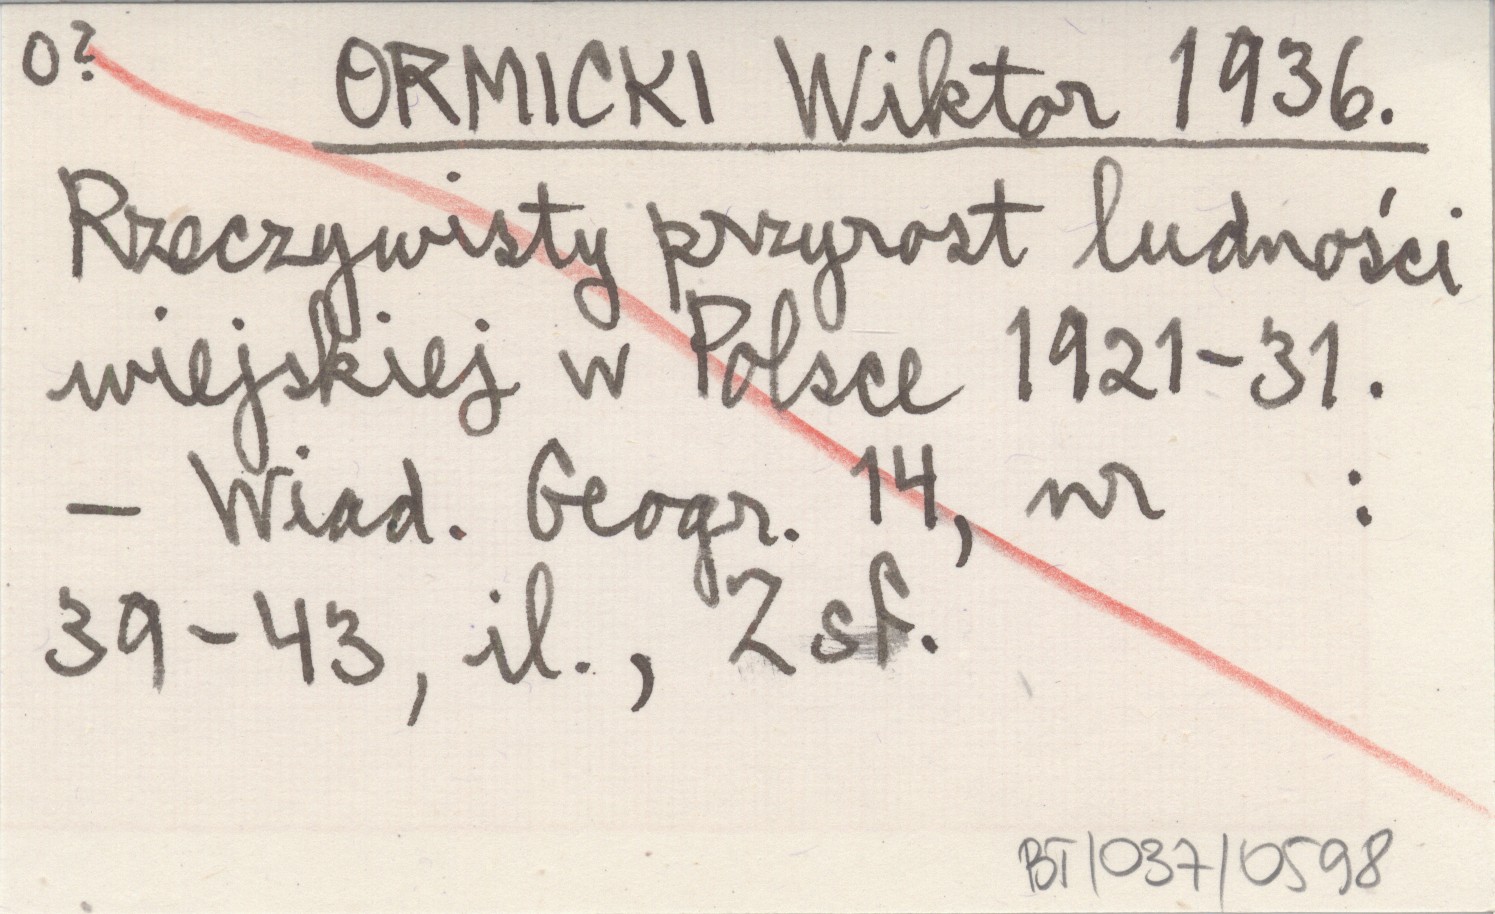 O?
ORMICKI Wiktor 1936.
Rzeczywisty przyrost ludności
wiejskiej w Polsce 1921-31.
- Wiad. Geogr. 14, nr :
39-43, il., Z sf.
BT/037/0598